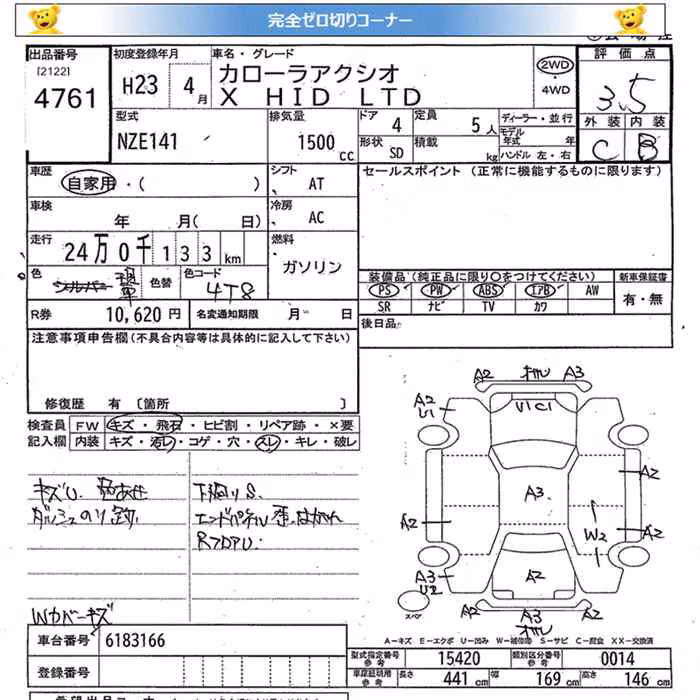 完全ゼロ切りコーナー
出品番号 初度登録年月 車名・グレード 評価点
[2122] カローラアクシオ 2WD
4761 H23 4月 X HID LTD ・4WD 3.5
型式 排気量 ドア 4 定員 5人 ディーラー・並行 外装 内装
NZE141 1500cc 形状 SD 積載 kg モデル年式 年 C B
ハンドル 左・右
車歴 自家用・( ) シフト AT セールスポイント (正常に機能するものに限ります)
車検 年 月( 日) 冷房 AC
走行 24万0千133km 燃料 ガソリン
色 シルバー 色替 色コード 4T8 装備品(純正品に限り○をつけてください) 新車保証書
PS PW ABS エアB AW 有・無
SR ナビ TV カワ
R券 10,620円 名変通知期限 月 日 後日品
注意事項申告欄(不具合内容等は具体的に記入して下さい)
修復歴 有 [箇所 ]
検査員 FW キズ・飛石・ヒビ割・リペア跡・×要
記入欄 内装 キズ・汚レ・コゲ・穴・スレ・キレ・破レ
キズU. 色あせ 下廻りS.
エンドパネル
RフロアU.
Wカバーキズ
A2 A3
A2 U1 U1C1
A3 A2
A2 W2 A2
A3 U2 A2
スペア A2 A3 A2
A-キズ E-エクボ U-凹み W-補修跡 S-サビ C-腐食 XX-交換済
車台番号 6183166
型式指定番号 参考 15420 類別区分番号 参考 0014
登録番号 車庫証明用 参考 長さ 441cm 幅 169cm 高さ 146cm